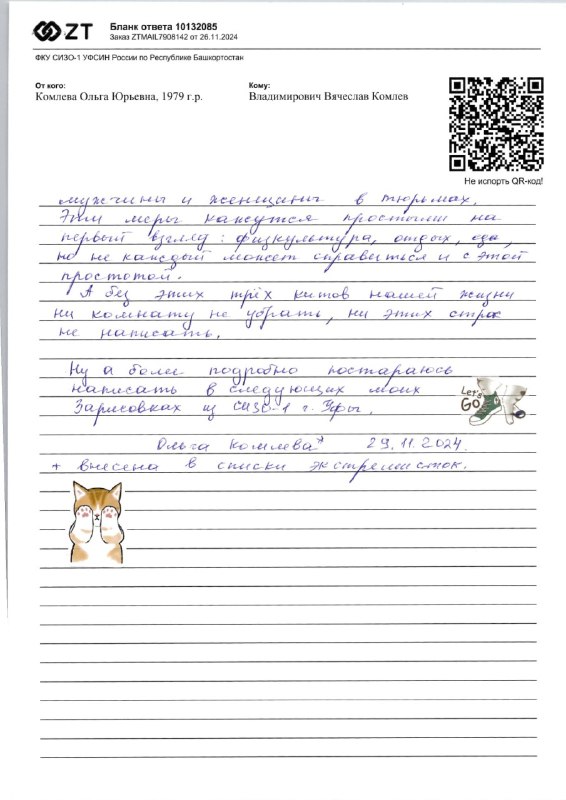 ZT
Бланк ответа 10132085
Заказ ZTMAIL7908142 от 26.11.2024
ФКУ СИЗО-1 УФСИН России по Республике Башкортостан
От кого:
Комлева Ольга Юрьевна, 1979 г.р.
Кому:
Владимирович Вячеслав Комлев
Не испорть QR-код!
мужчины и женщины в тюрьмах.
Эти меры кажутся простыми на
первый взгляд: физкультура, отдых, еда,
но не каждый может справиться и с этой
простотой.
А без этих трёх китов нашей жизни
ни комнату не убрать, ни этих строк
не написать.
Ну а более подробно постараюсь
написать в следующих моих
Зарисовках из СИЗО-1 г. Уфы.
Let's
GO
Ольга Комлева* 29.11.2024.
+ внесена в списки экстремисток.